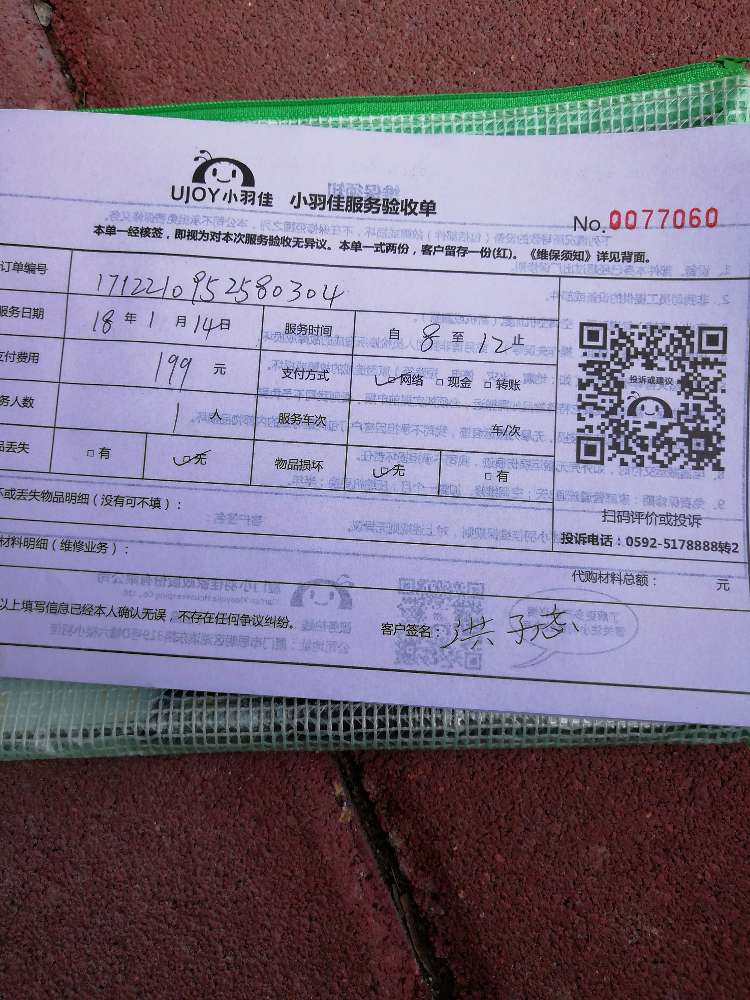 UJOY小羽佳 小羽佳服务验收单
No.0077060
本单一经核签，即视为对本次服务验收无异议。本单一式两份，客户留存一份(红)。《维保须知》详见背面。
订单编号 1712210952580304
服务日期 18年1月14日 服务时间 自8至12止
支付费用 199元 支付方式 ☑网络 □现金 □转账
务人数 1人 服务车次 车/次
品丢失 □有 ☑无 物品损坏 ☑无 □有
投诉或建议
扫码评价或投诉
投诉电话：0592-5178888转2
坏或丢失物品明细（没有可不填）：
材料明细（维修业务）：
代购材料总额： 元
以上填写信息已经本人确认无误，不存在任何争议纠纷。
客户签名：洪子志